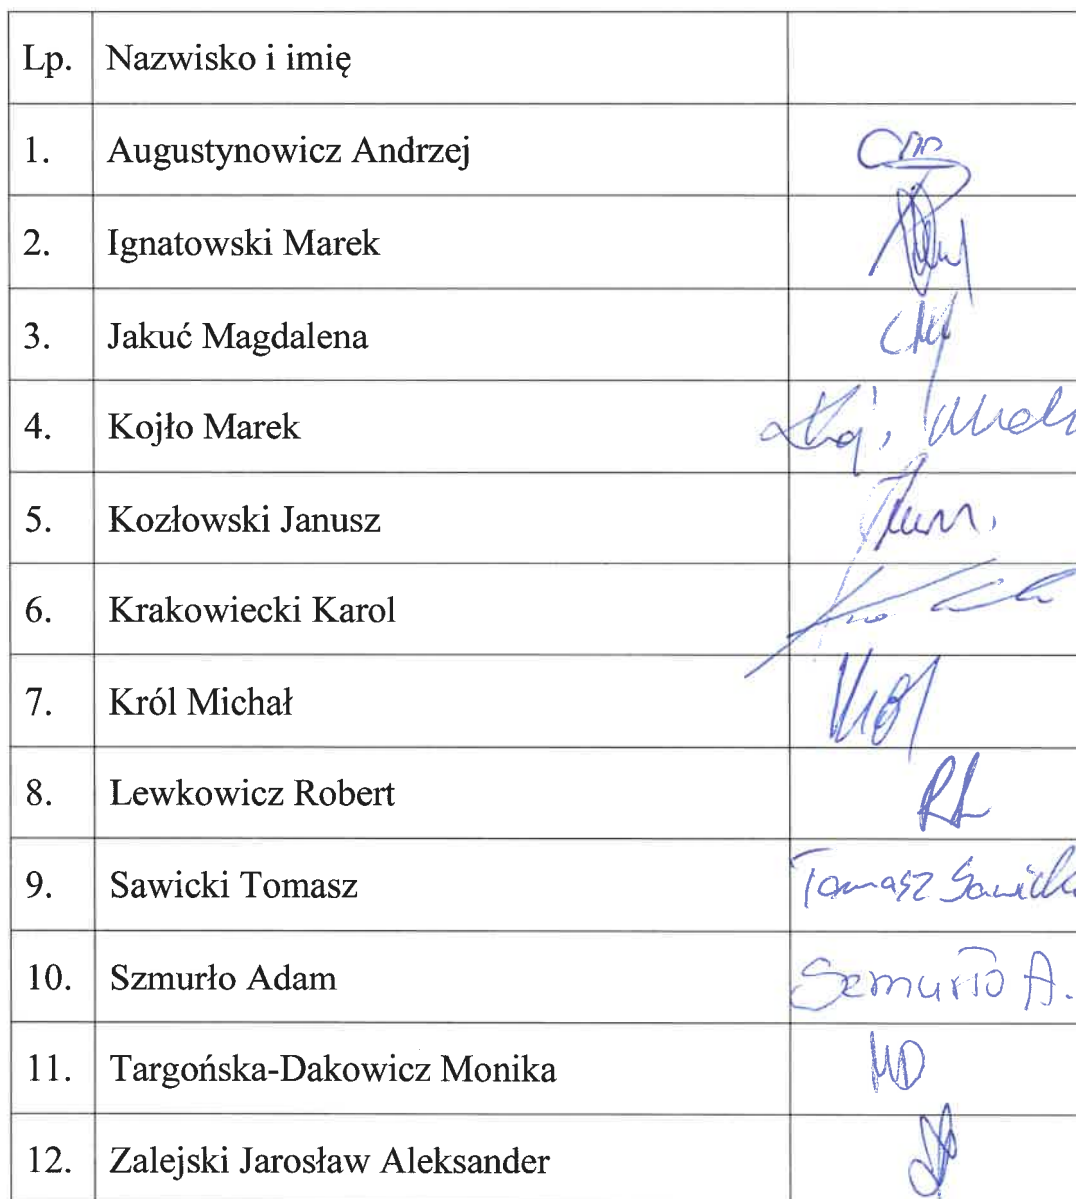 Lp. Nazwisko i imię
1. Augustynowicz Andrzej
2. Ignatowski Marek
3. Jakuć Magdalena
4. Kojło Marek
5. Kozłowski Janusz
6. Krakowiecki Karol
7. Król Michał Król
8. Lewkowicz Robert RL
9. Sawicki Tomasz Tomasz Sawicki
10. Szmurło Adam Szmurło A.
11. Targońska-Dakowicz Monika MD
12. Zalejski Jarosław Aleksander